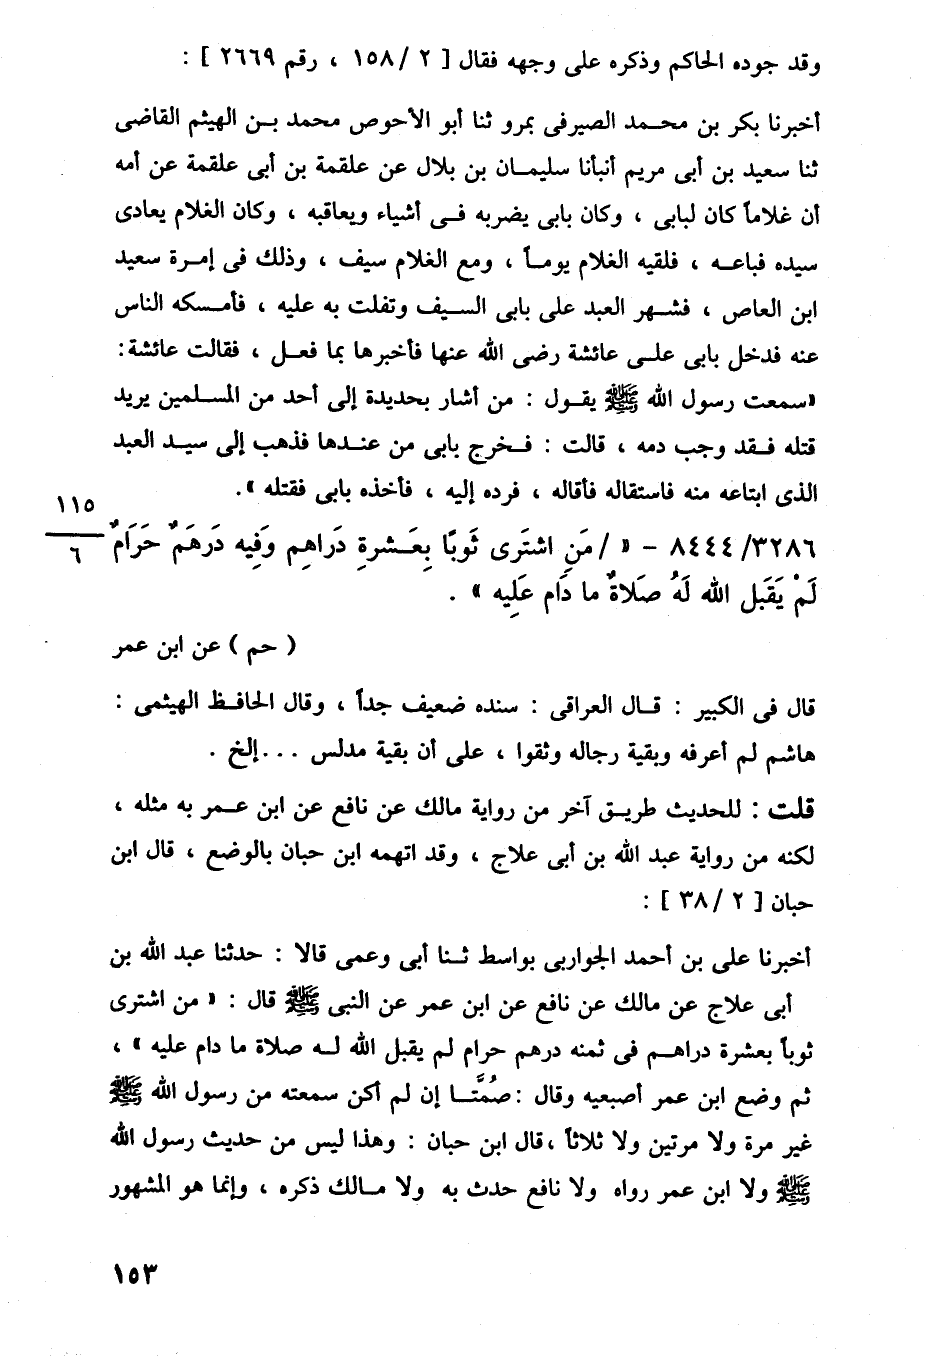 وقد جوده الحاكم وذكره على وجهه فقال [ ٢ / ١٥٨ ، رقم ٢٦٦٩ ] :
أخبرنا بكر بن محمد الصيرفى بمرو ثنا أبو الأحوص محمد بن الهيثم القاضى
ثنا سعيد بن أبى مريم أنبأنا سليمان بن بلال عن علقمة بن أبى علقمة عن أمه
أن غلاماً كان لبابى ، وكان بابى يضربه فى أشياء ويعاقبه ، وكان الغلام يعادى
سيده فباعه ، فلقيه الغلام يوماً ، ومع الغلام سيف ، وذلك فى إمرة سعيد
ابن العاص ، فشهر العبد على بابى السيف وتفلت به عليه ، فأمسكه الناس
عنه فدخل بابى على عائشة رضى الله عنها فأخبرها بما فعل ، فقالت عائشة :
«سمعت رسول الله ﷺ يقول : من أشار بحديدة إلى أحد من المسلمين يريد
قتله فقد وجب دمه ، قالت : فخرج بابى من عندها فذهب إلى سيد العبد
الذى ابتاعه منه فاستقاله فأقاله ، فرده إليه ، فأخذه بابى فقتله ».
١١٥
٦
٨٤٤٤/٣٢٨٦ – « /مَنِ اشتَرى ثَوبًا بِعَشرةِ دَراهِم وَفِيه دَرهَمٌ حَرَامٌ
لَمْ يَقَبَل الله لَهُ صَلَاةٌ ما دَام عَلَيِه » .
( حم ) عن ابن عمر
قال فى الكبير : قال العراقى : سنده ضعيف جداً ، وقال الحافظ الهيثمى :
هاشم لم أعرفه وبقية رجاله وثقوا ، على أن بقية مدلس ...إلخ .
قلت : للحديث طريق آخر من رواية مالك عن نافع عن ابن عمر به مثله ،
لكنه من رواية عبد الله بن أبى علاج ، وقد اتهمه ابن حبان بالوضع ، قال ابن
حبان [ ٢ / ٣٨ ] :
أخبرنا على بن أحمد الجواربى بواسط ثنا أبى وعمى قالا : حدثنا عبد الله بن
أبى علاج عن مالك عن نافع عن ابن عمر عن النبى ﷺ قال : « من اشترى
ثوباً بعشرة دراهم فى ثمنه درهم حرام لم يقبل الله له صلاة ما دام عليه » ،
ثم وضع ابن عمر أصبعيه وقال :صُمَّتا إن لم أكن سمعته من رسول الله ﷺ
غير مرة ولا مرتين ولا ثلاثاً ،قال ابن حبان : وهذا ليس من حديث رسول الله
ﷺ ولا ابن عمر رواه ولا نافع حدث به ولا مالك ذكره ، وإنما هو المشهور
١٥٣